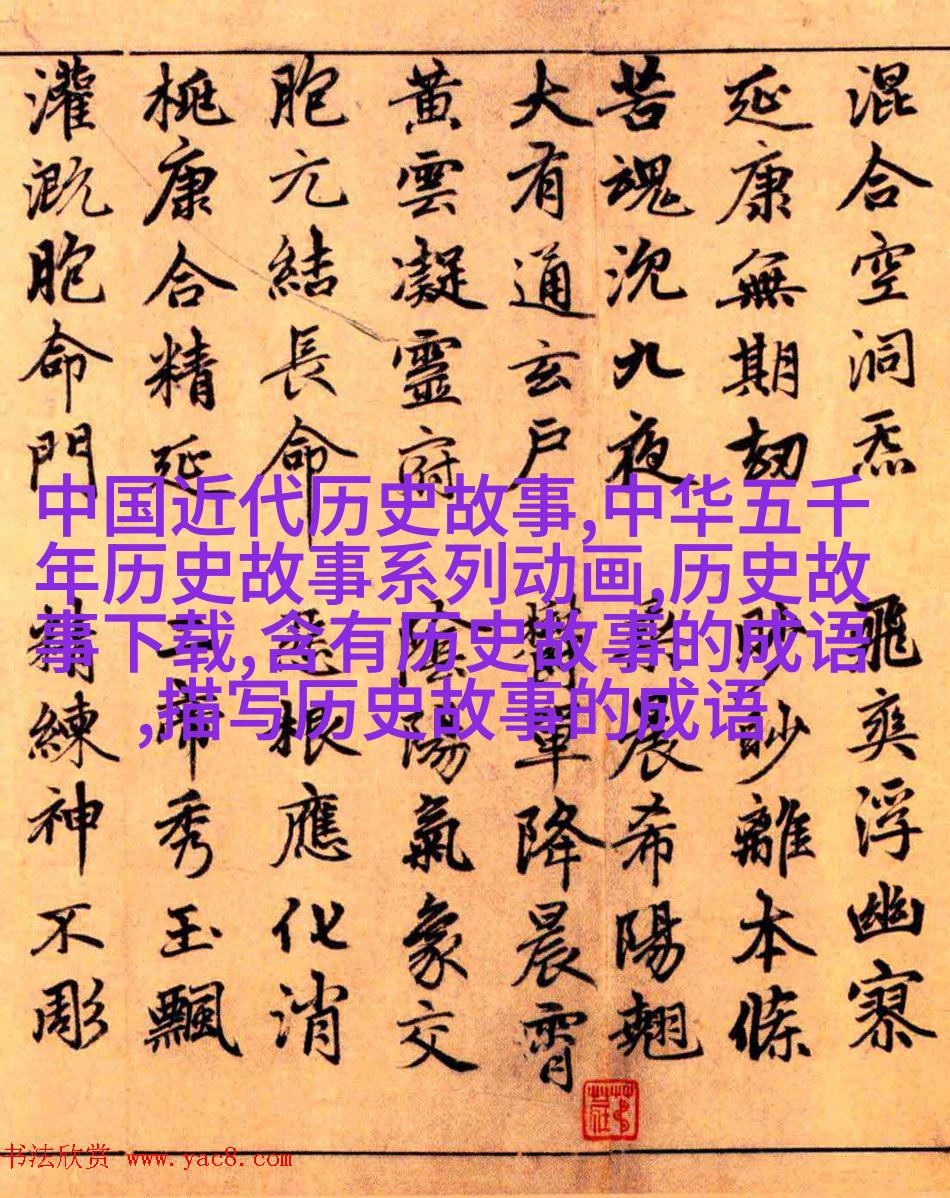 混合空洞炁 飛爽浮幽寥
延康無期劫 眇眇離本條
苦魂沈九夜 晨希陽翹
大有通玄戶 鬱單降晨霄
黃雲凝靈府 陰陽氣象交
胞元結長命 根應化消
桃康合精延 帝秀玉飄
灌溉胞命門 精練神不彫
中国近代历史故事,中华五千
年历史故事系列动画,历史故
事下载,含有历史故事的成语
,描写历史故事的成语
书法欣赏 www.yac8.com